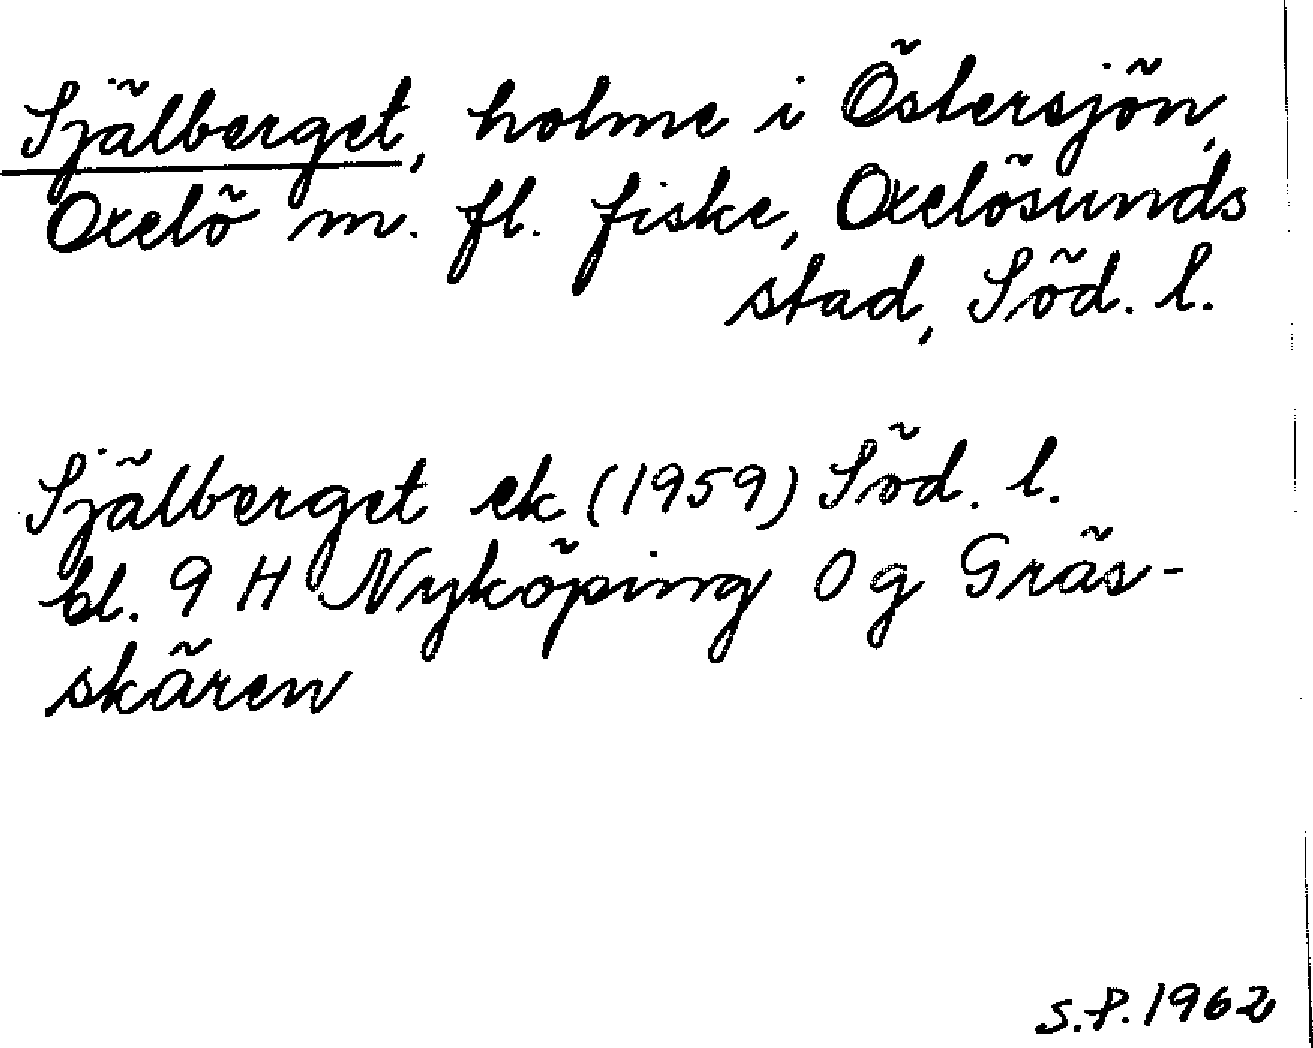 Själberget, holme i Östersjön,
Oxelö m. fl. fiske, Oxelösunds
stad, Söd. l.
Själberget ek (1959) Söd. l.
bl. 9 H Nyköping 0 g Gräs-
skären
S.P. 1962